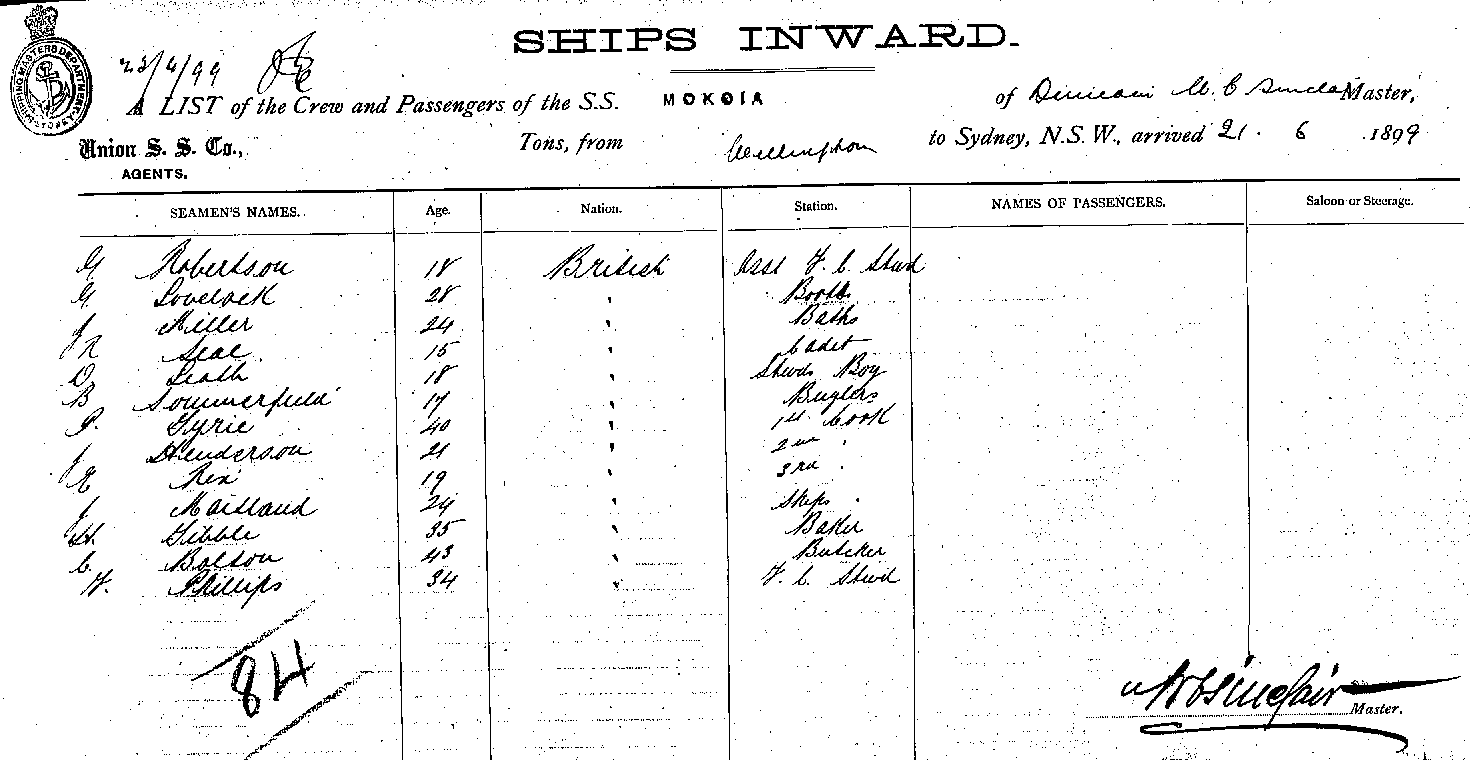 SHIPS INWARD.
A LIST of the Crew and Passengers of the S.S. MOKOIA of Duncan Mc Sinclair Master,
Union S. S. Co., Tons, from Wellington to Sydney, N.S.W., arrived 21. 6 .1899
AGENTS.
SEAMEN'S NAMES. Age. Nation. Station. NAMES OF PASSENGERS. Saloon or Steerage.
G Robertson 18 British Asst F. C. Stwd
G Lovelock 28 " Boots
J Miller 24 " Baths
R Seal 15 " Cadet
D Leath 18 " Stwds Boy
B Sommerfield 17 " Buglers
P. Gyrie 40 " 1st Cook
J Henderson 21 " 2nd "
E Rex 19 " 3rd "
J Maitland 24 " Ships "
H. Gibble 35 " Baker
C. Bolton 43 " Butcher
F. Phillips 34 " F. C. Stwd
84
Sinclair
Master.